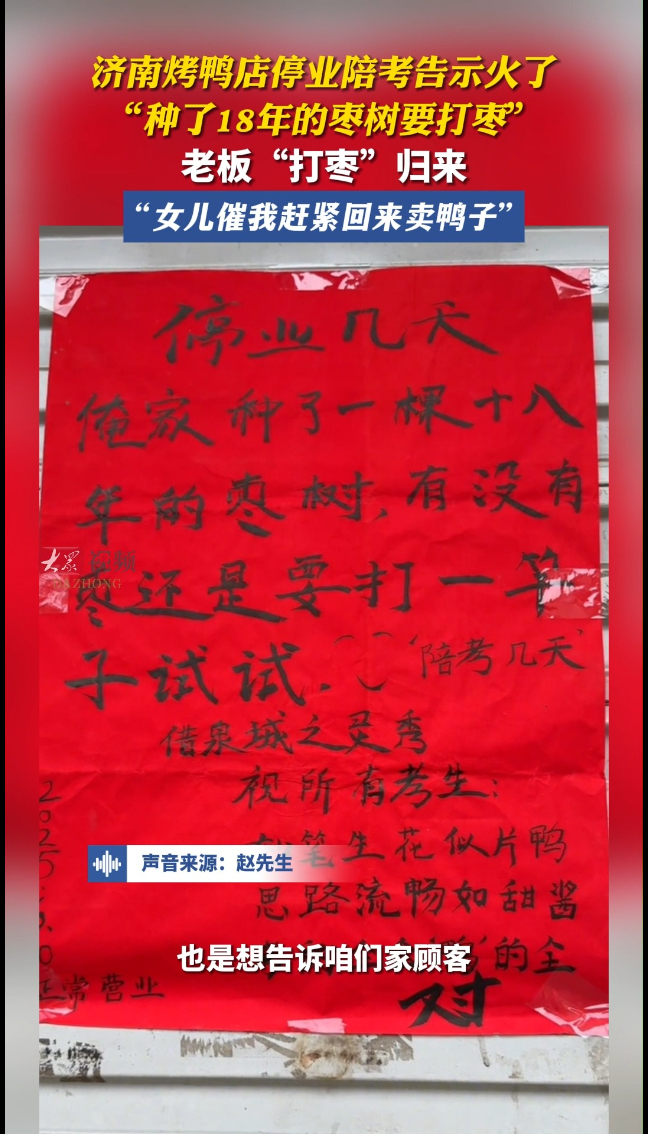 济南烤鸭店停业陪考告示火了
“种了18年的枣树要打枣”
老板“打枣”归来
“女儿催我赶紧回来卖鸭子”
停业几天
俺家种了一棵十八
年的枣树,有没有
枣还是要打一竿
子试试.
“陪考几天”
借泉城之灵秀
祝所有考生:
笔生花似片鸭
思路流畅如甜酱
的全
对
2025
0
正常营业
大众视频
DAZHONG
声音来源：赵先生
也是想告诉咱们家顾客